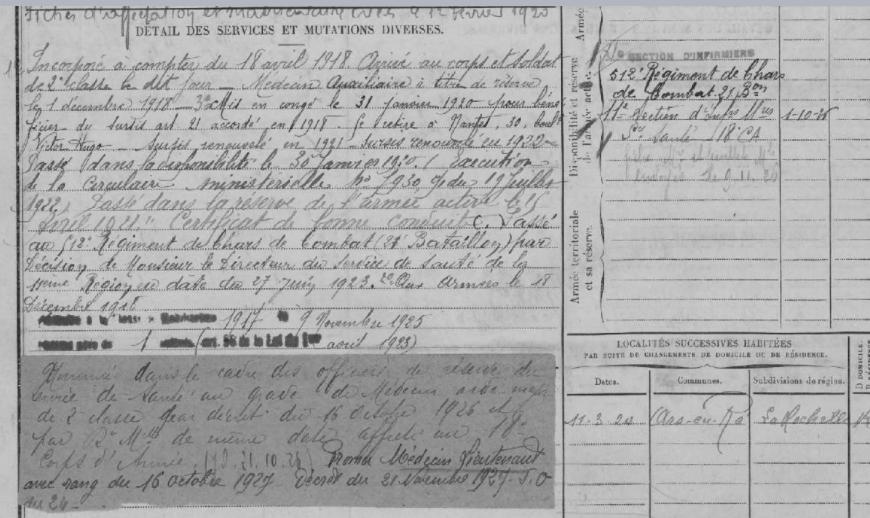 Fiches d'affectation et matriculaire créées le 12 février 1925
DÉTAIL DES SERVICES ET MUTATIONS DIVERSES.
Incorporé à compter du 18 avril 1918. Arrivé au corps et soldat
de 2e classe le dit jour — Médecin Auxiliaire à titre de réserve
le 1 décembre 1918 — Mis en congé le 31 janvier 1920 pour béné
ficier du sursis art 21 accordé en 1918. Se retire à Nantes, 30,
Victor Hugo — Sursis renouvelé en 1921 — Sursis renouvelé en 1922 —
Passé dans la disponibilité le 30 janvier 1920. (Exécution
de la Circulaire ministerielle No 7930 du 19 juillet
1922) Passé dans la réserve de l'armée active le 15
avril 1921. " Certificat de bonne conduite ". Passé
au 512e Régiment de Chars de Combat (21 Bataillon) par
Décision de Monsieur le Directeur du Service de Santé de la
11ème Région en date du 27 juin 1923. Aux armées le 18
Décembre 1918
1917 9 Novembre 1925
1 avril 1923)
Nommé dans le cadre des officiers de réserve du
service de santé au grade de Médecin aide major
de 2 classe par décret du 16 octobre 1926 et
par de même date affecté au 18e
Corps d'Armée (21.10.26) Promu Médecin Lieutenant
avec rang du 16 octobre 1927 Décret du 21 Novembre 1927 J.O
du 24 —
Armée
Disponibilité et réserve
de l'armée active.
Armée territoriale
et sa réserve.
SECTION D'INFIRMIERS
512e Régiment de Chars
de Combat 21 Bon
Section d'Infrs Mres 1-10-2
Santé 18e CA
LOCALITÉS SUCCESSIVES HABITÉES
PAR SUITE DE CHANGEMENTS DE DOMICILE OU DE RÉSIDENCE.
Dates. Communes. Subdivisions de région. D DOMICILE.
11-3-24 Ars-en-Ré La Rochelle